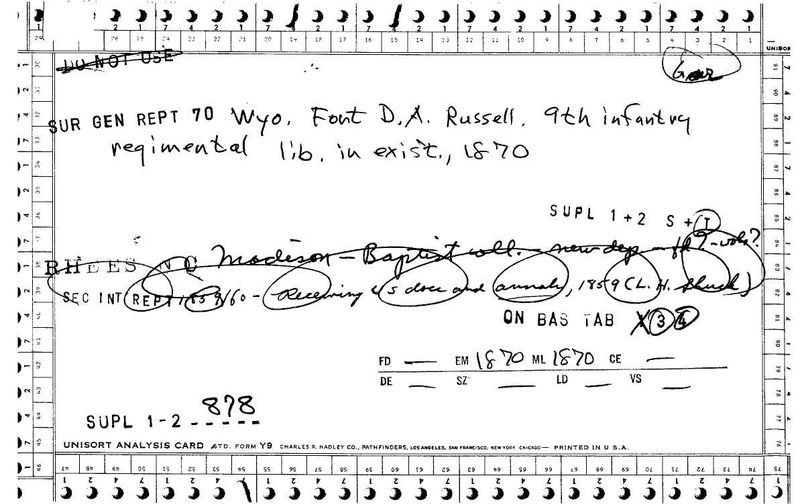 DO NOT USE
SUR GEN REPT 70 Wyo. Font D.A. Russell. 9th infantry
regimental lib. in exist., 1870
SUPL 1+2 S + I
RHEES N C Madison - Baptist coll. - new dep. - vols?
SEC INT REPT 1859/60 - Receiving US docs and annals, 1859 (L. H. Shuck)
ON BAS TAB X 3 4
FD — EM 1870 ML 1870 CE —
DE — SZ — LD — VS —
SUPL 1-2 878
UNISORT ANALYSIS CARD STD. FORM Y9 CHARLES R. HADLEY CO., PATHFINDERS, LOS ANGELES, SAN FRANCISCO, NEW YORK CHICAGO — PRINTED IN U.S.A.